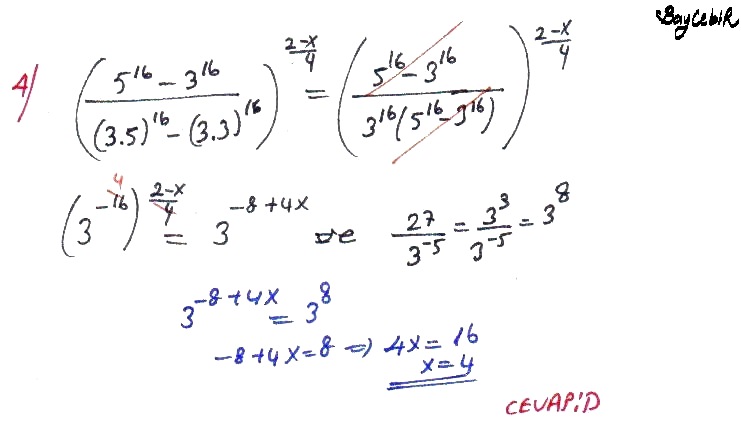 BayCebiR
4/ ((5^16 - 3^16)/((3.5)^16 - (3.3)^16))^((2-x)/4) = ((5^16 - 3^16)/(3^16(5^16 - 3^16)))^((2-x)/4)
(3^-16)^((2-x)/4) = 3^(-8+4x) ve 27/3^-5 = 3^3/3^-5 = 3^8
4
3^(-8+4x) = 3^8
-8+4x=8 => 4x=16
x=4
CEVAP:D